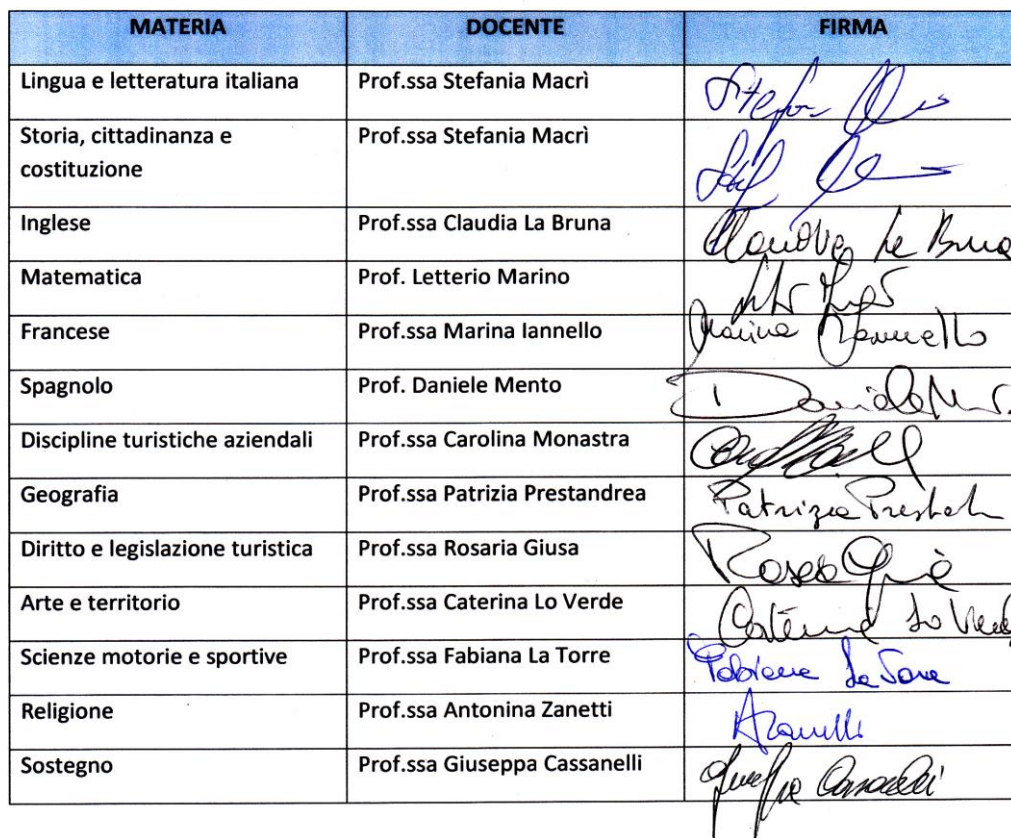 MATERIA DOCENTE FIRMA
Lingua e letteratura italiana Prof.ssa Stefania Macrì
Storia, cittadinanza e Prof.ssa Stefania Macrì
costituzione
Inglese Prof.ssa Claudia La Bruna Claudia La Bruna
Matematica Prof. Letterio Marino
Francese Prof.ssa Marina Iannello Marina Iannello
Spagnolo Prof. Daniele Mento
Discipline turistiche aziendali Prof.ssa Carolina Monastra
Geografia Prof.ssa Patrizia Prestandrea Patrizia
Diritto e legislazione turistica Prof.ssa Rosaria Giusa
Arte e territorio Prof.ssa Caterina Lo Verde Caterina Lo Verde
Scienze motorie e sportive Prof.ssa Fabiana La Torre Fabiana La Torre
Religione Prof.ssa Antonina Zanetti
Sostegno Prof.ssa Giuseppa Cassanelli